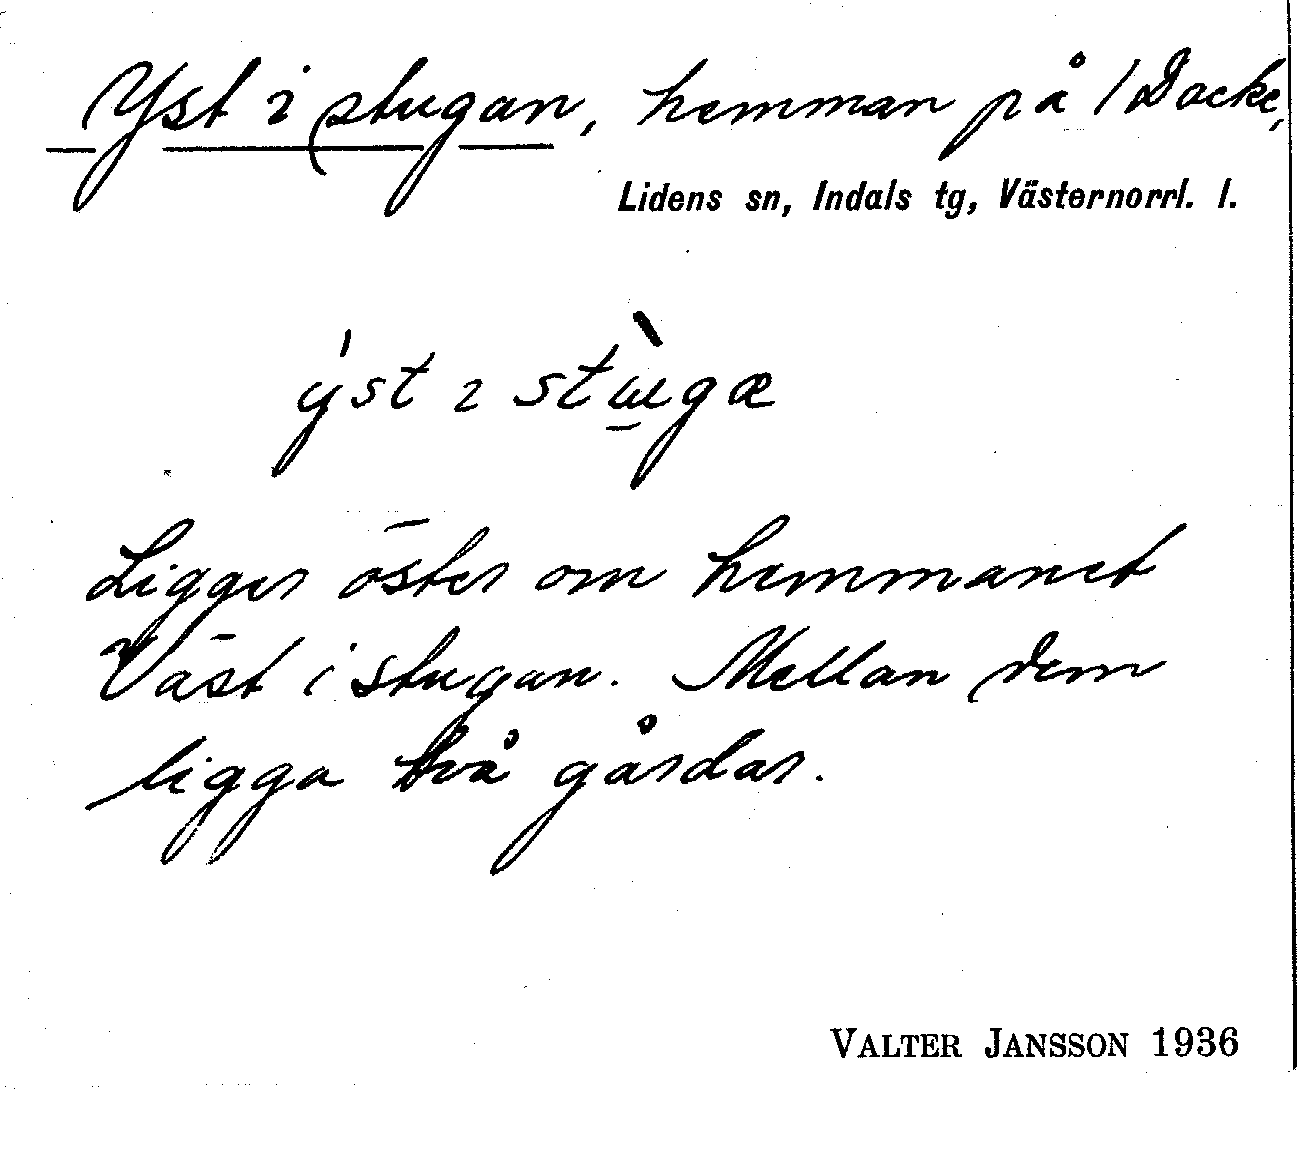 Yst i stugan, hemman på /Backe,
Lidens sn, Indals tg, Västernorrl. l.
ýst ɩ stɯ̀gæ
Ligger öster om hemmanet
Väst i stugan. Mellan dem
ligga två gårdar.
VALTER JANSSON 1936